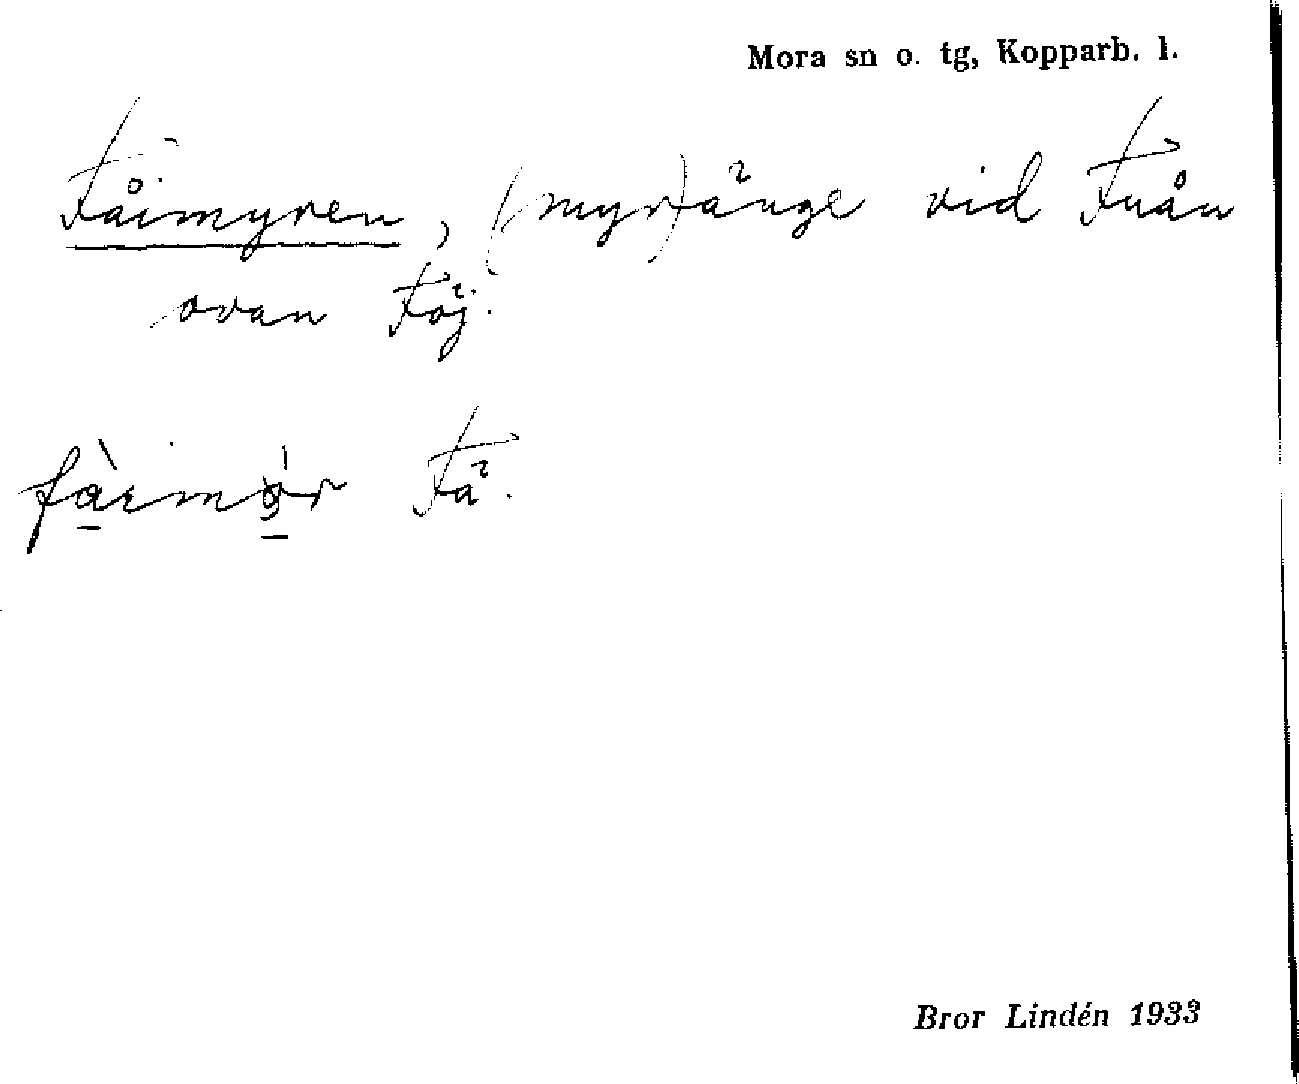 Mora sn o. tg, Kopparb. l.
Fåimyren, (myr)änge vid Fuån
ovan Fäj.
fàimỏ̀r Fä.
Bror Lindén 1933